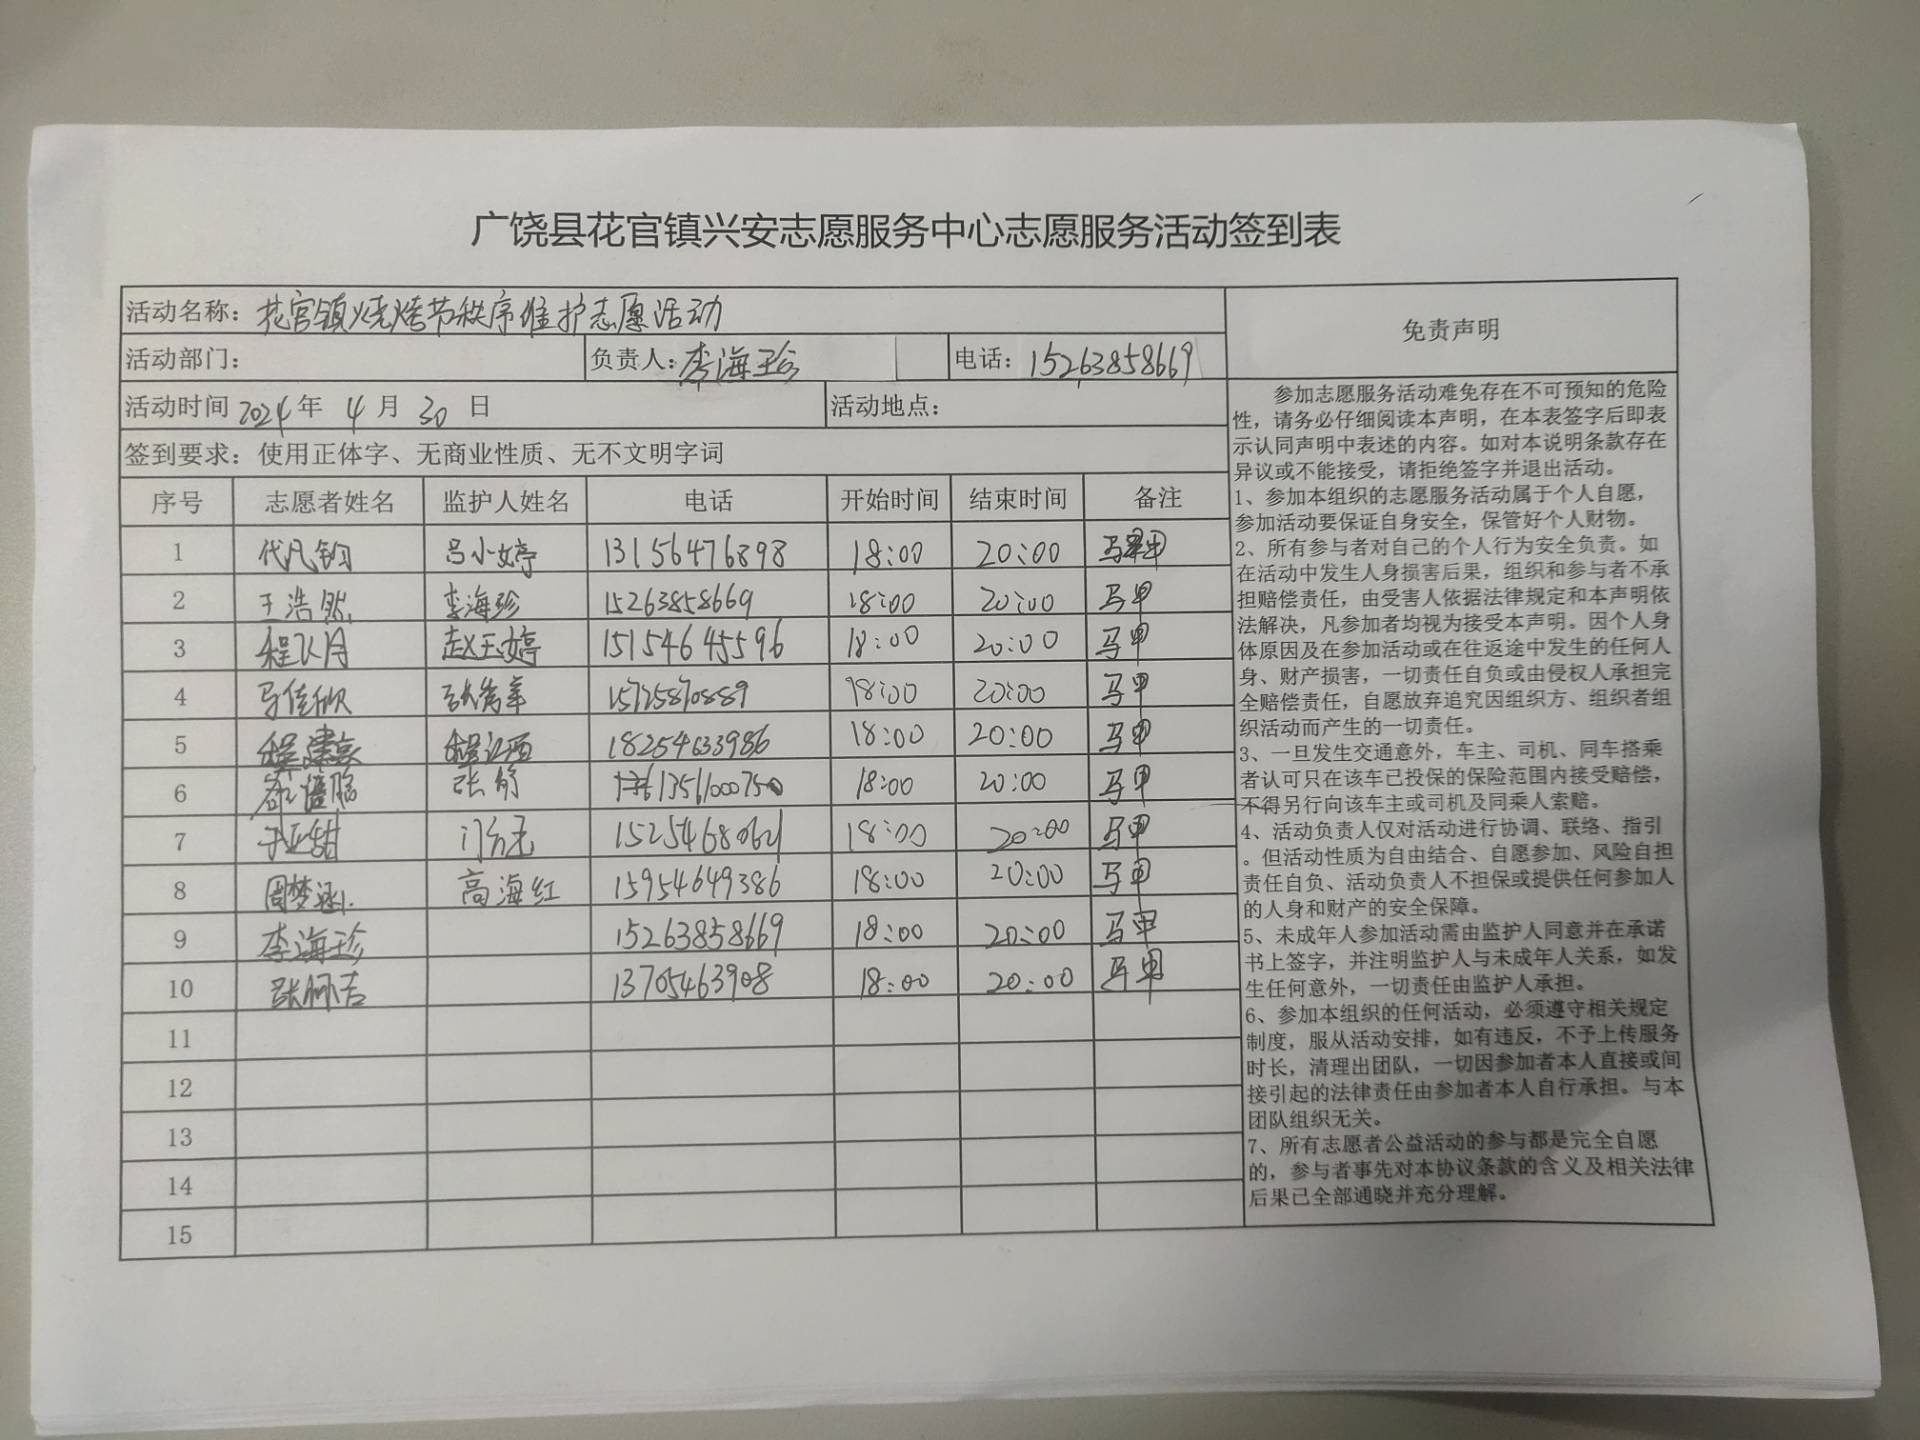 广饶县花官镇兴安志愿服务中心志愿服务活动签到表
活动名称：花官镇烧烤节秩序维护志愿活动
活动部门： 负责人：李海珍 电话：15263858669
活动时间 2024 年 4 月 30 日 活动地点：
签到要求：使用正体字、无商业性质、无不文明字词
序号 志愿者姓名 监护人姓名 电话 开始时间 结束时间 备注
1 代凡钧 吕小婷 13156476898 18:00 20:00 马甲
2 王浩然 李海珍 15263858669 18:00 20:00 马甲
3 赵玉婷 15154645596 18:00 20:00 马甲
4 马佳欣 18:00 20:00 马甲
5 18254633986 18:00 20:00 马甲
6 13561000750 18:00 20:00 马甲
7 于亚甜 15254680621 18:00 20:00 马甲
8 周梦涵 高海红 15954649386 18:00 20:00 马甲
9 李海珍 15263858669 18:00 20:00 马甲
10 13705463908 18:00 20:00 马甲
11
12
13
14
15
免责声明
参加志愿服务活动难免存在不可预知的危险
性，请务必仔细阅读本声明，在本表签字后即表
示认同声明中表述的内容。如对本说明条款存在
异议或不能接受，请拒绝签字并退出活动。
1、参加本组织的志愿服务活动属于个人自愿，
参加活动要保证自身安全，保管好个人财物。
2、所有参与者对自己的个人行为安全负责。如
在活动中发生人身损害后果，组织和参与者不承
担赔偿责任，由受害人依据法律规定和本声明依
法解决，凡参加者均视为接受本声明。因个人身
体原因及在参加活动或在往返途中发生的任何人
身、财产损害，一切责任自负或由侵权人承担完
全赔偿责任，自愿放弃追究因组织方、组织者组
织活动而产生的一切责任。
3、一旦发生交通意外，车主、司机、同车搭乘
者认可只在该车已投保的保险范围内接受赔偿，
不得另行向该车主或司机及同乘人索赔。
4、活动负责人仅对活动进行协调、联络、指引
。但活动性质为自由结合、自愿参加、风险自担
责任自负、活动负责人不担保或提供任何参加人
的人身和财产的安全保障。
5、未成年人参加活动需由监护人同意并在承诺
书上签字，并注明监护人与未成年人关系，如发
生任何意外，一切责任由监护人承担。
6、参加本组织的任何活动，必须遵守相关规定
制度，服从活动安排，如有违反，不予上传服务
时长，清理出团队，一切因参加者本人直接或间
接引起的法律责任由参加者本人自行承担。与本
团队组织无关。
7、所有志愿者公益活动的参与都是完全自愿
的，参与者事先对本协议条款的含义及相关法律
后果已全部通晓并充分理解。